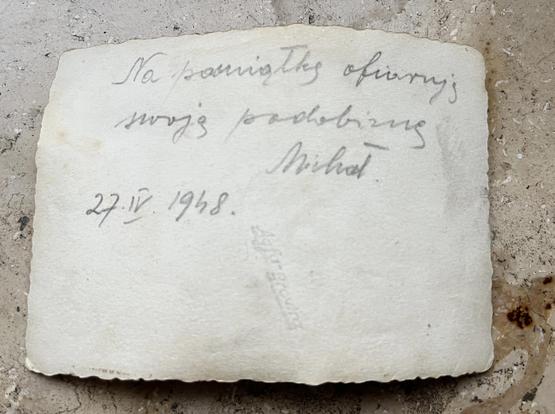 Na pamiątkę ofiaruję
swoją podobiznę
Michał.
27.IV. 1948.